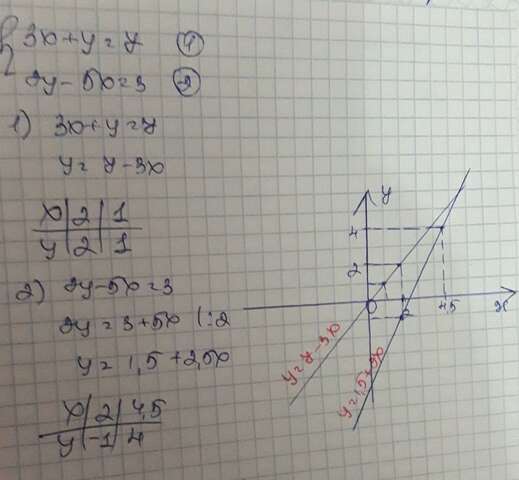 3x+y=7 ①
2y-5x=3 ②
1) 3x+y=7
y=7-3x
x|2|1
y|2|1
2) 2y-5x=3
2y=3+5x |:2
y=1,5+2,5x
x|2|4,5
y|-1|4
y
4
2
0
2
4,5
x
y=7-3x